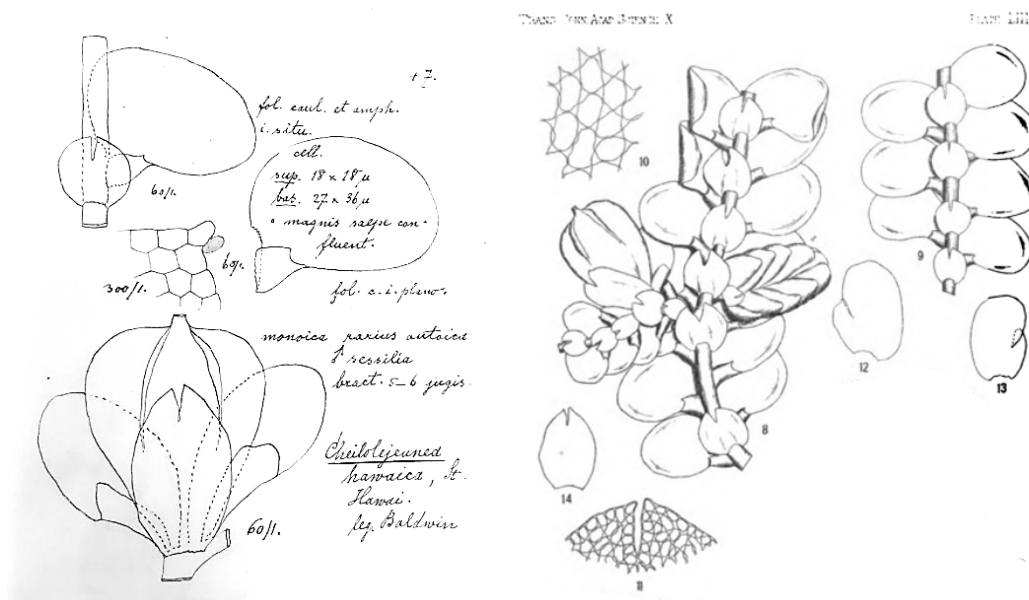 +7.
fol. caul. et amph.
i. situ.
cell.
sup. 18 × 18 µ
bas. 27 × 36 µ
magnis saepe con-
fluent.
60/1.
60/1.
300/1.
fol. c. i. plano.
monoica rarius autoica
♂ sessilia
bract. 5–6 jugis.
Cheilolejeunea
hawaica, St.
Hawai.
leg. Baldwin
60/1.
TRANS. CONN. ACAD. SCIENCE X
PLATE LIII
10
9
12
13
8
14
11